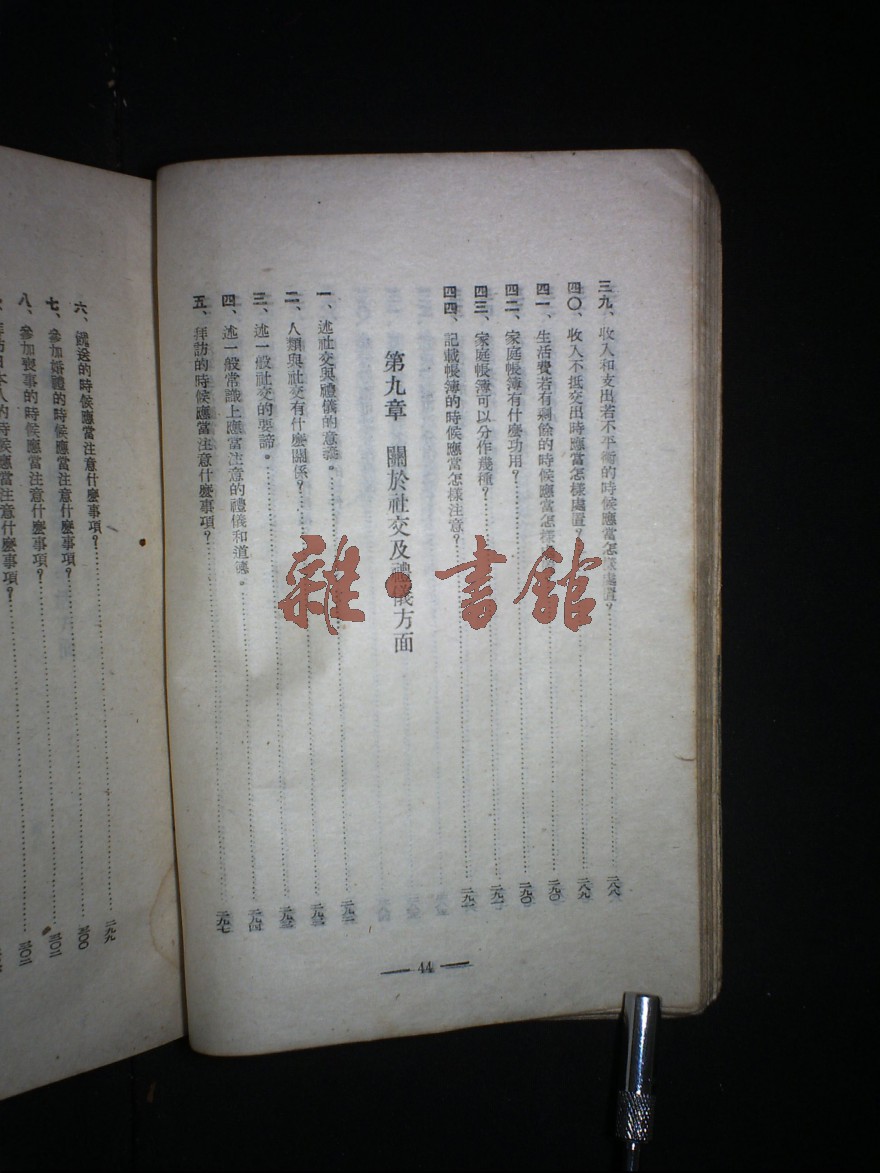 三九、收入和支出若不平衡的時候應當怎樣處置？……二八八
四〇、收入不抵支出時應當怎樣處置？……二八九
四一、生活費若有剩餘的時候應當怎樣……二九〇
四二、家庭帳簿有什麼功用？……二九〇
四三、家庭帳簿可以分作幾種？……二九一
四四、記載帳簿的時候應當怎樣注意？……二九一
第九章 關於社交及禮儀方面
一、述社交與禮儀的意義。……二九三
二、人類與社交有什麼關係？……二九三
三、述一般社交的要諦。……二九三
四、述一般常識上應當注意的禮儀和道德。……二九四
五、拜訪的時候應當注意什麼事項？……二九七
— 44 —
六、餽送的時候應當注意什麼事項？……二九九
七、參加婚禮的時候應當注意什麼事項？……三〇〇
八、參加喪事的時候應當注意什麼事項？……三〇二
拜訪日本人的時候應當注意什麼事項？
雜·書館